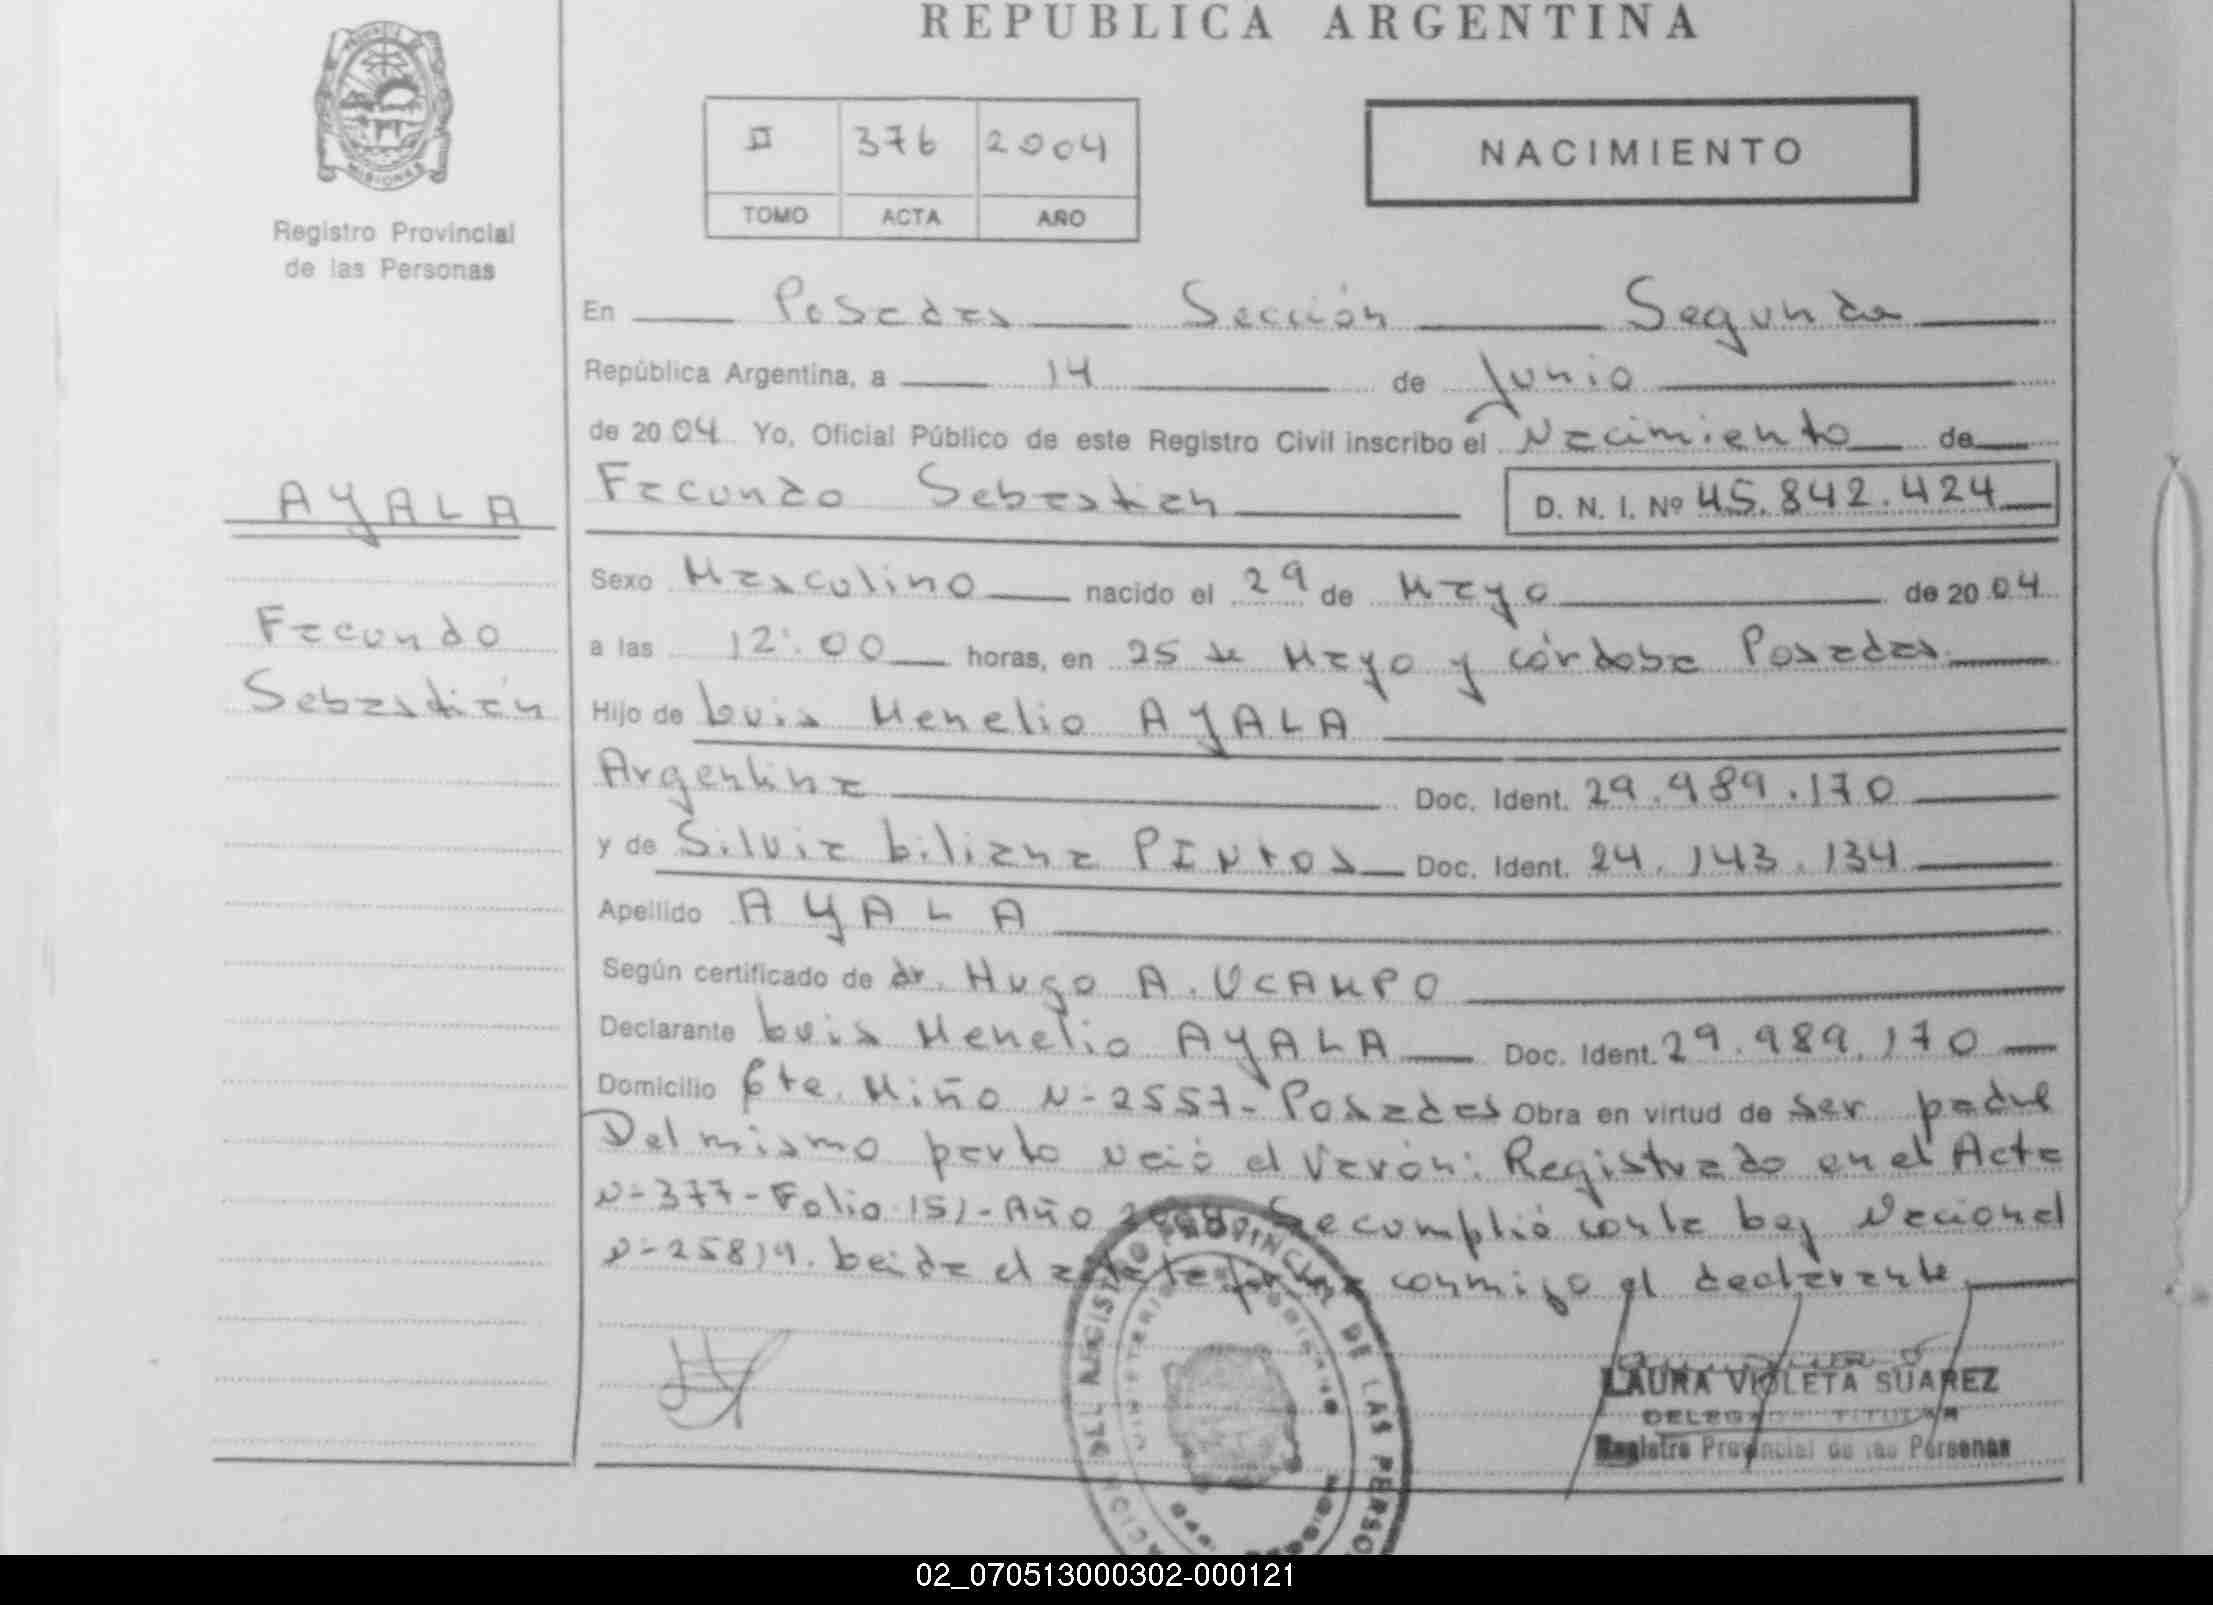 REPUBLICA ARGENTINA
PROVINCIA DE
MISIONES
Registro Provincial
de las Personas
II 376 2004
TOMO ACTA AÑO
NACIMIENTO
En Posadas Sección Segunda
República Argentina, a 14 de Junio
de 2004 Yo, Oficial Público de este Registro Civil inscribo el Nacimiento de
AYALA
Facundo Sebastian D. N. I. Nº 45.842.424
Sexo Masculino nacido el 29 de Mayo de 2004
Facundo
Sebastián
a las 12:00 horas, en 25 de Mayo y córdoba Posadas
Hijo de Luis Menelio AYALA
Argentina Doc. Ident. 29.989.170
y de Silvia Liliana PINTOS Doc. Ident. 24.143.134
Apellido AYALA
Según certificado de dr. Hugo A. OCAMPO
Declarante Luis Menelio AYALA Doc. Ident. 29.989.170
Domicilio Cte. Miño N-2557-Posadas Obra en virtud de ser padre
Del mismo parto nació el Varón: Registrado en el Acta
N-377-Folio 151-Año Se cumplió con la Ley Nacional
N-25819. Leida el acta la firma conmigo el declarante
REGISTRO PROVINCIAL DE LAS PERSO
LAURA VIOLETA SUAREZ
DELEGADA TITULAR
Registro Provincial de las Personas
02_070513000302-000121